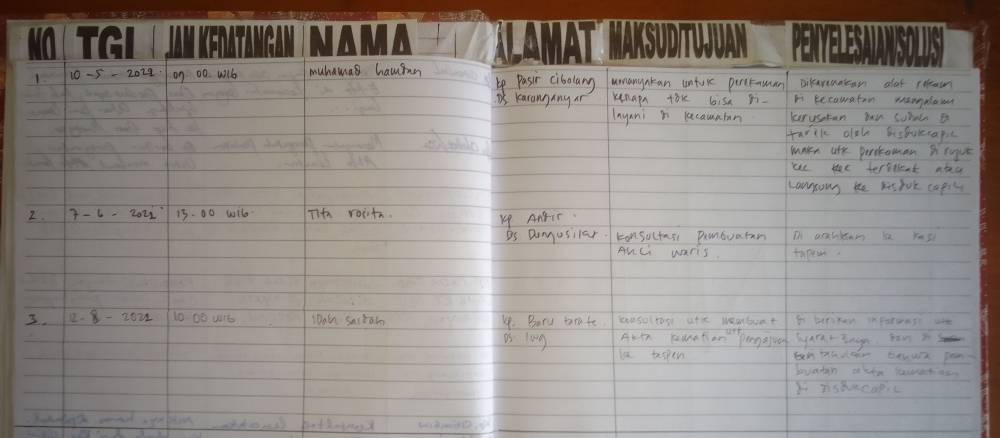 NO TGL JAM KEDATANGAN NAMA ALAMAT MAKSUD/TUJUAN PENYELESAIAN/SOLUSI
1 10-5-2021 09.00 wib muhamad hamdan Kp Pasir Cibolang menanyakan untuk perekaman Dikarenakan alat rekam
Ds Karanganyar kenapa tdk bisa di- di kecamatan mengalami
layani di kecamatan kerusakan dan sudah di
tarik oleh disdukcapil
maka utk perekaman di rujuk
kec terdekat atau
Langsung ke Disdukcapil
2. 7-6-2021 13.00 wib Tita rosita. Kp
Ds konsultasi pembuatan Di arahkan ke kasi
waris. tapem.
3. 12-8-2021 10.00 wib Idah saidah Kp. Baru konsultasi utk membuat di berikan informasi utk
Ds. Akta kematian utk pengajuan syarat dan di
ke taspen bahwa pem-
buatan akta kematian
di Disdukcapil